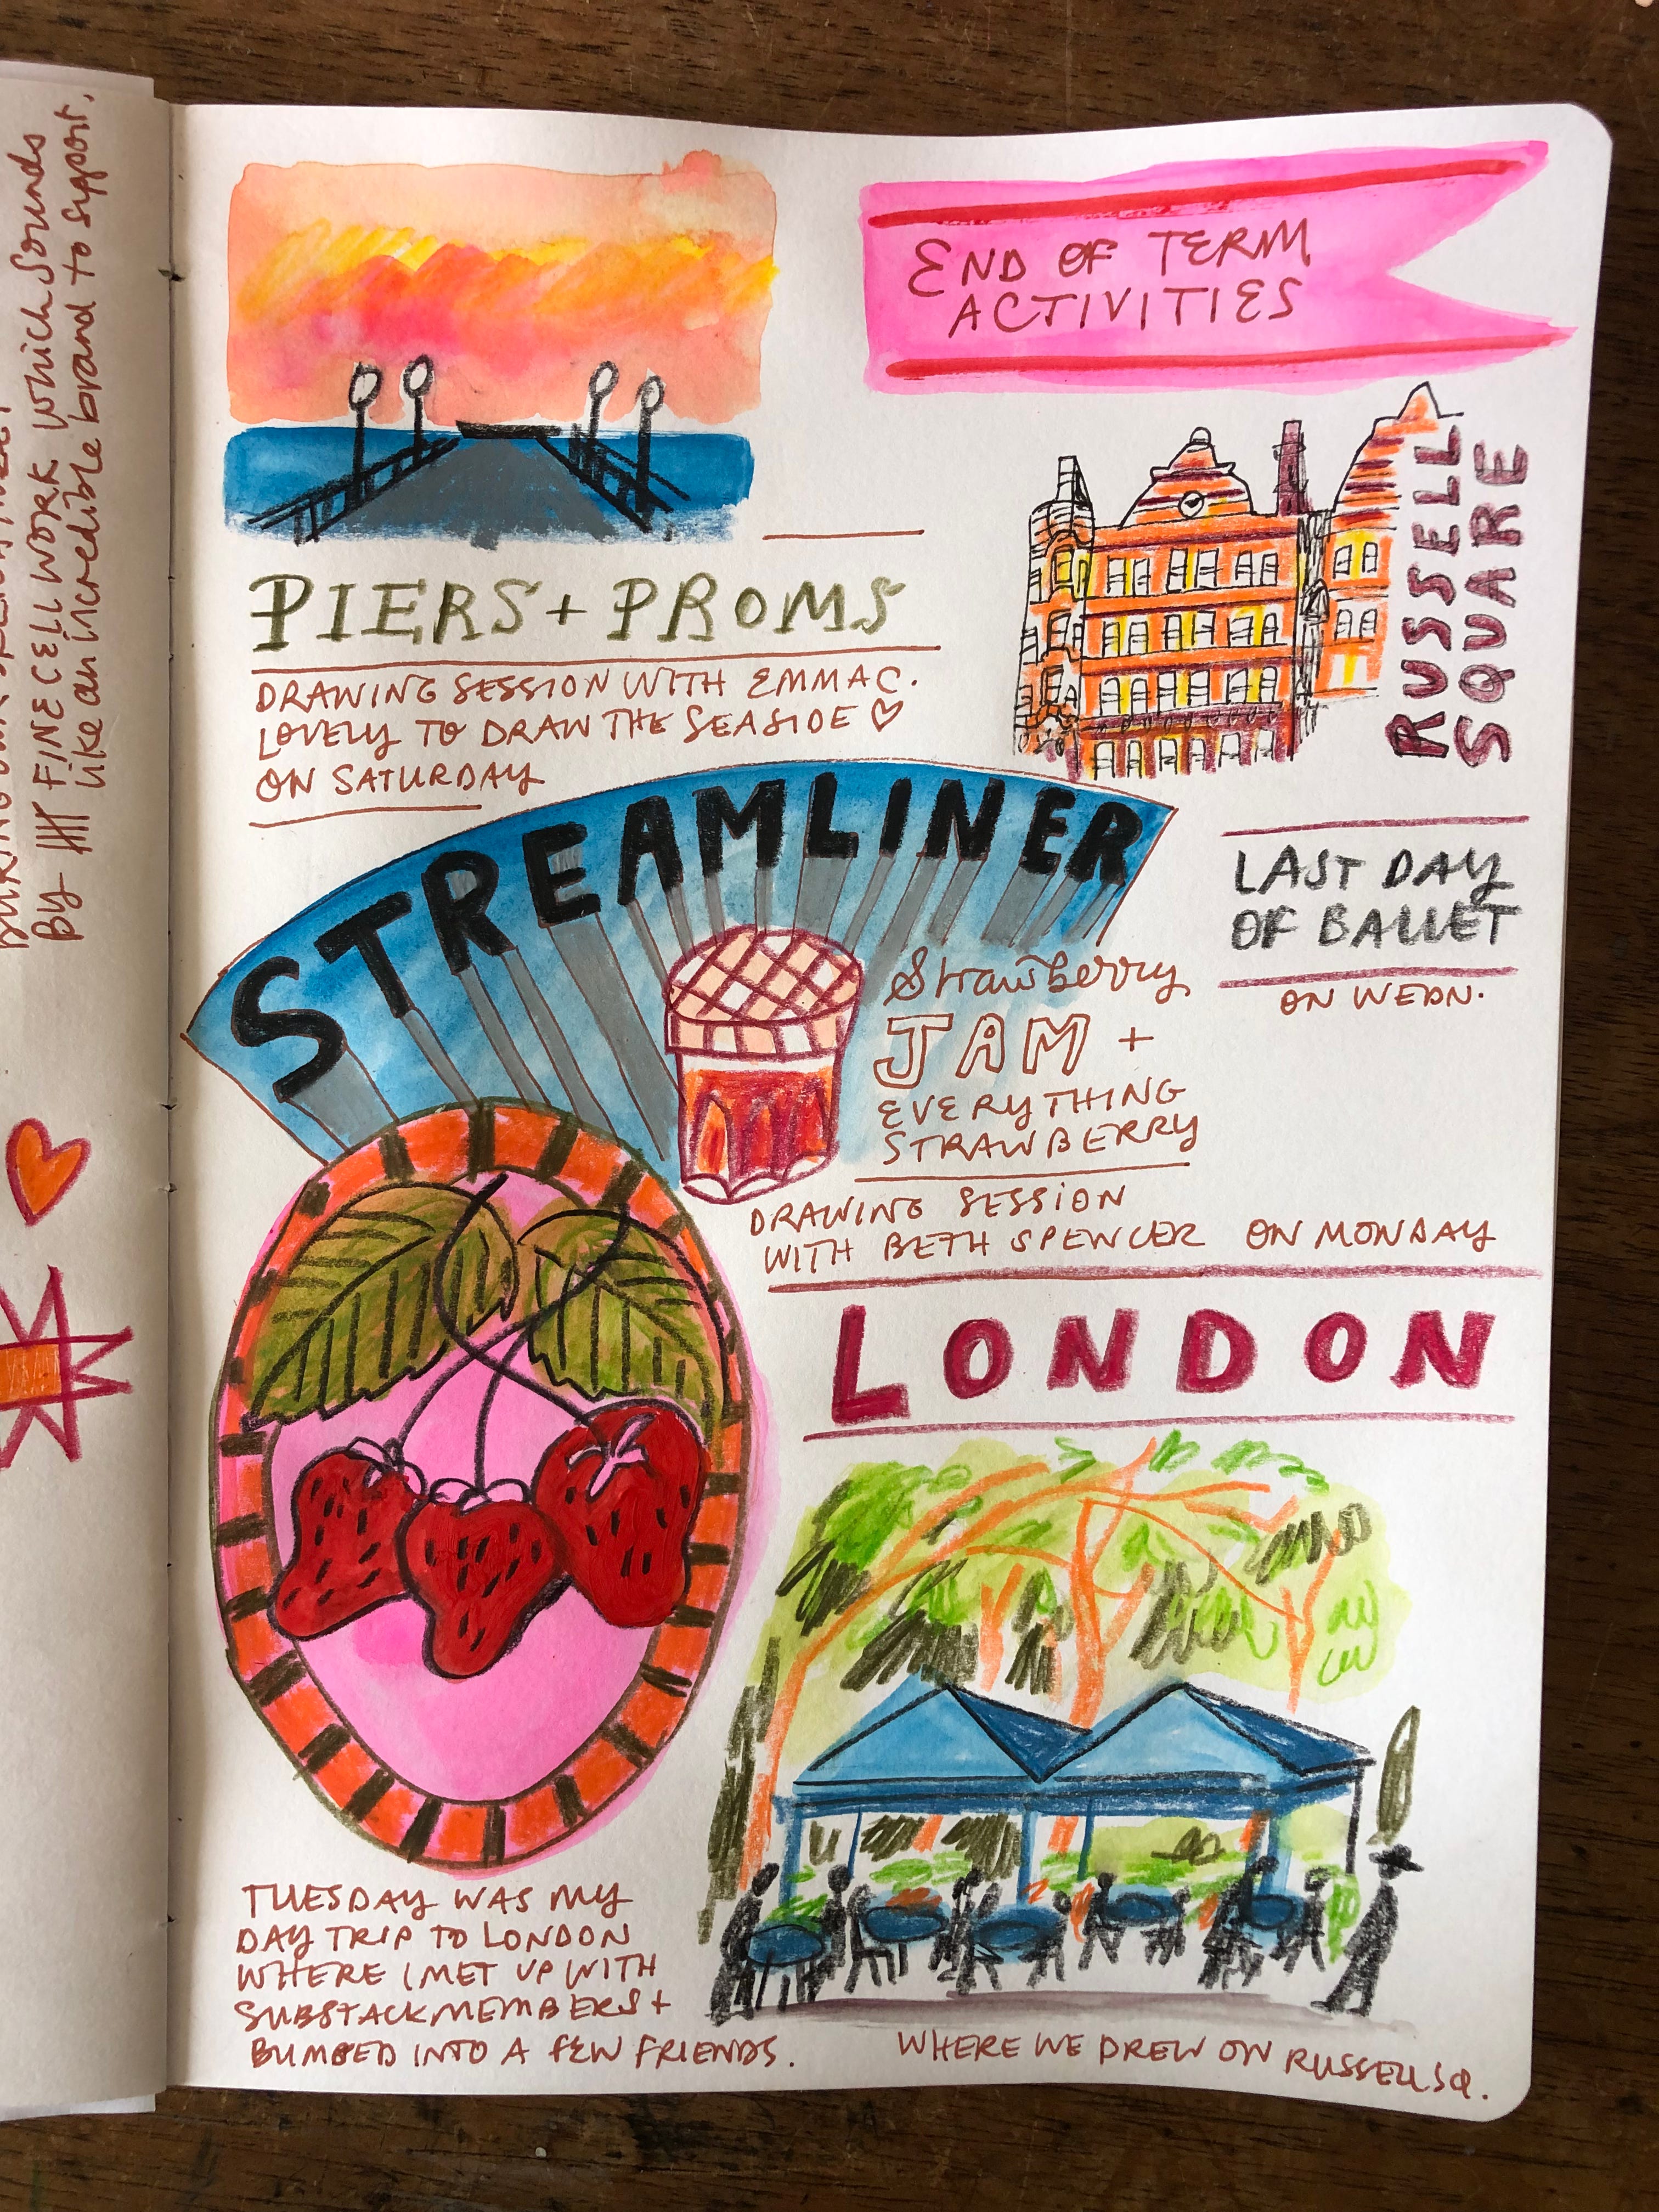 END OF TERM
ACTIVITIES
PIERS + PROMS
DRAWING SESSION WITH EMMA C.
LOVELY TO DRAW THE SEASIDE ♡
ON SATURDAY
RUSSELL
SQUARE
STREAMLINER
LAST DAY
OF BALLET
ON WEDN.
Strawberry
JAM +
EVERYTHING
STRAWBERRY
DRAWING SESSION
WITH BETH SPENCER ON MONDAY
LONDON
TUESDAY WAS MY
DAY TRIP TO LONDON
WHERE I MET UP WITH
SUBSTACK MEMBERS +
BUMPED INTO A FEW FRIENDS.
WHERE WE DREW ON RUSSELL SQ.
By FINE CELL WORK which sounds
like an incredible brand to support.